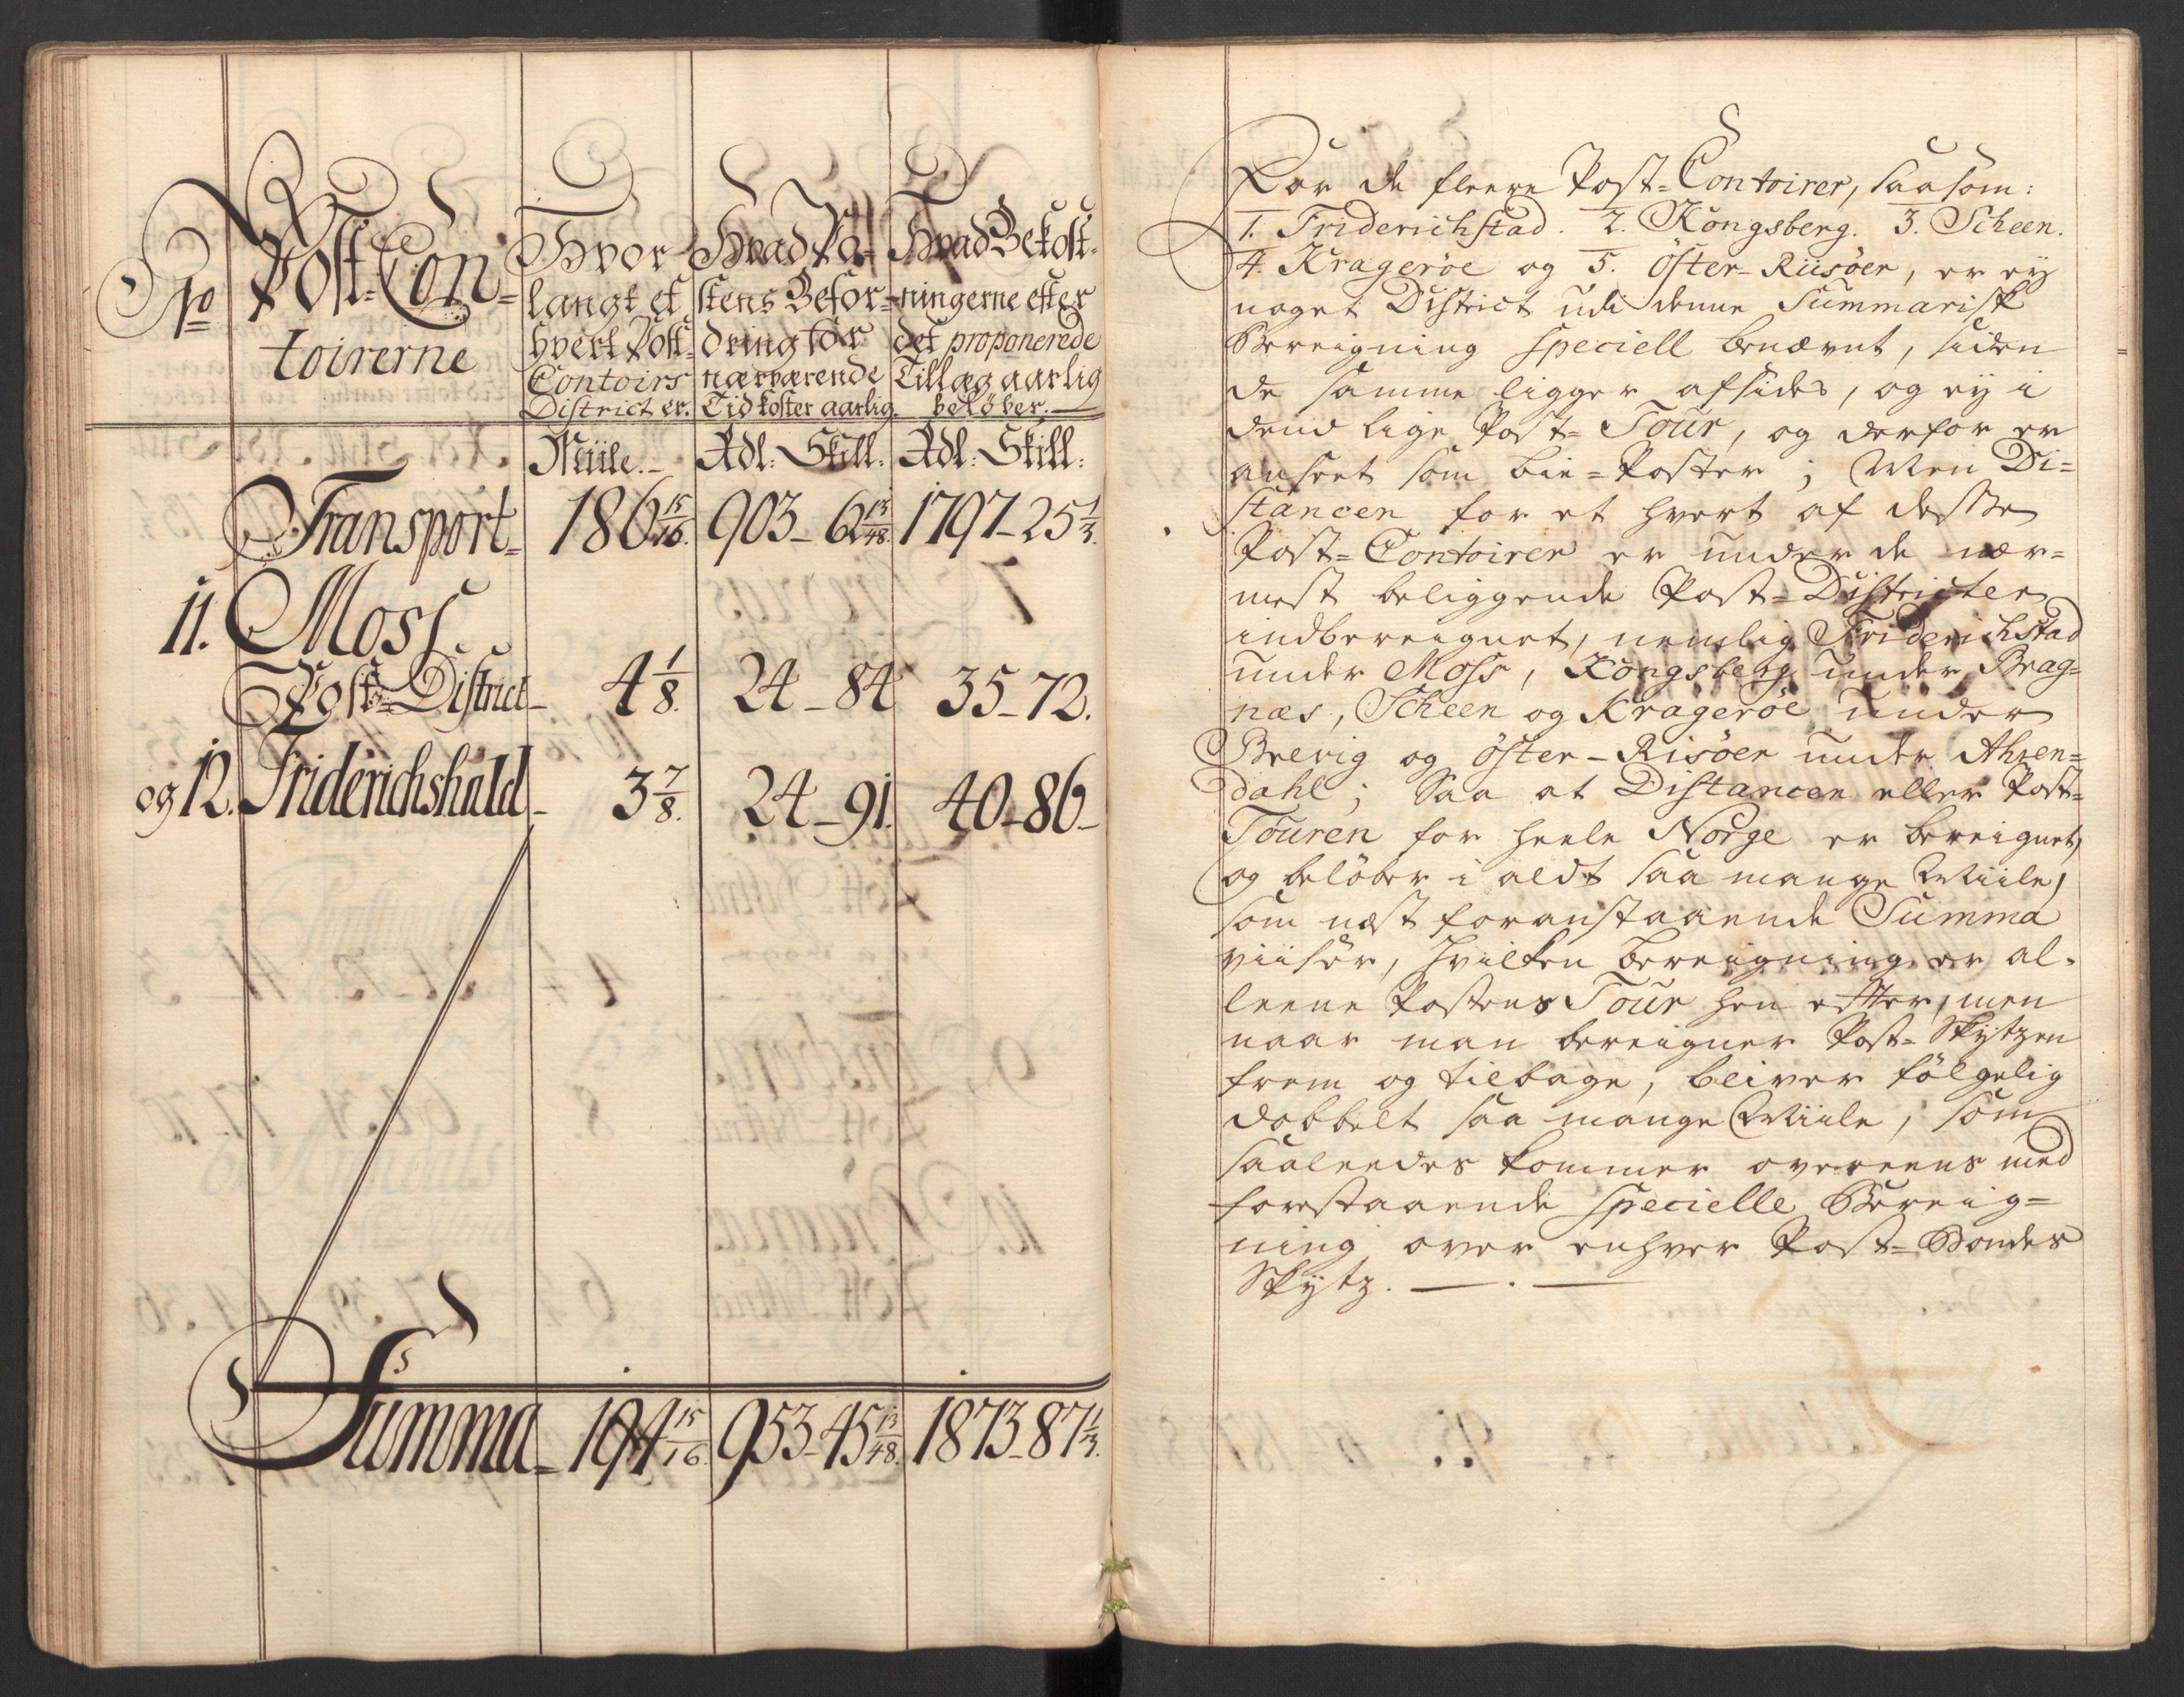 No Post-Con=
toirerne
Hvor
langt et
hvert Post=
Contoirs
District er.
Hvad Po=
stens Befor=
dring for
nærværende
Tid koster aarlig.
Hvad Bekost=
ningerne efter
det proponerede
Tillæg aarlig
beløber.
Miile.- Rdl: Skill: Rdl: Skill:
Transport= 186 15/16. 903_ 62 13/48. 1797_ 25 1/3.
11. Moss
Post=District_ 4 1/8. 24_84 35_72.
og 12. Friderichshald_ 3 7/8. 24_91. 40_86_
Summa_ 194 15/16. 953_45 13/48. 1873_87 1/3.
For de fleere Post=Contoirer, saasom:
1. Friderichstad. 2. Kongsberg. 3. Scheen.
4. Krageröe og 5. Öster-Riisöer, er ey
noget District udi denne Summarisk
Bereigning speciell benævnt, siden
de samme ligger afsides, og ey i
dend lige Post=Tour, og derfor er
anseet som bie=Poster; Men Di=
stancen for et hvert af desse
Post=Contoirer er under de nær=
mest beliggende Post=Districter
indbereignet, nemlig Friderichstad
under Moss, Kongsberg under Brag=
næs, Scheen og Krageröe under
Brevig og Öster-Risöer under Ahren=
dahl; Saa at Distancen eller Post=
Touren for heele Norge er bereignet,
og belöber i aldt saa mange Miile,
som næst foranstaaende Summa
viiser, hvilken bereigning er al=
leene Postens Tour hen efter, men
naar man bereigner Post=Skytzen
frem og tilbage, bliver fölgelig
dobbelt saa mange Miile, som
saaleedes kommer overeens med
forestaaende specielle Bereig=
ning over enhver Post=Bondes
Skytz.